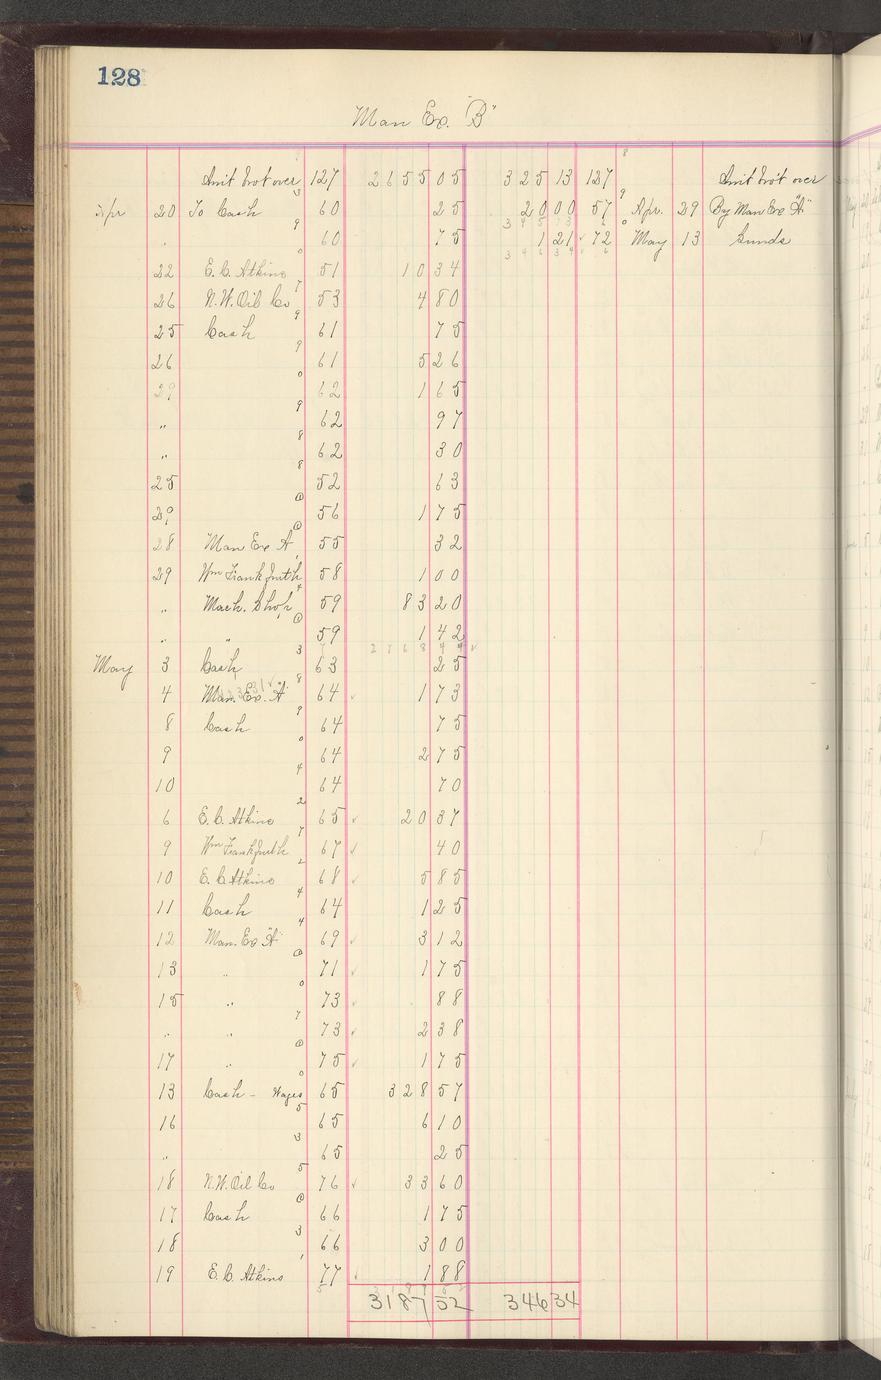 128
Man Ex. "B"
Am't bro't over 127 2655 05 325 13 127 Am't bro't over
Apr 20 To Cash 60 25 20 00 57 Apr. 29 By Man Exe "A"
" 60 75 1 21 72 May 13 Sunds
22 E. C. Atkins 51 10 34
26 N. W. Oil Co 53 4 80
25 Cash 61 75
26 61 5 26
29 62 1 65
" 62 97
" 62 30
25 52 63
29 56 1 75
28 Man Exe A 55 32
29 Wm Frankfurth 58 1 00
" Mach. Shop 59 83 20
" " 59 1 42
2768 44
May 3 Cash 63 25
4 Man. Ex. "A" 64 1 73
8 Cash 64 75
9 64 2 75
10 64 70
6 E. C. Atkins 65 20 37
9 Wm Frankfurth 67 40
10 E. C Atkins 68 5 85
11 Cash 64 1 25
12 Man. Ex "A" 69 3 12
13 " 71 1 75
15 " 73 88
" " 73 2 38
17 " 75 1 75
13 Cash - Wages 65 328 57
16 65 6 10
" 65 25
18 N. W. Oil Co 76 33 60
17 Cash 66 1 75
18 66 3 00
19 E. C. Atkins 77 1 88
3187 52 346 34